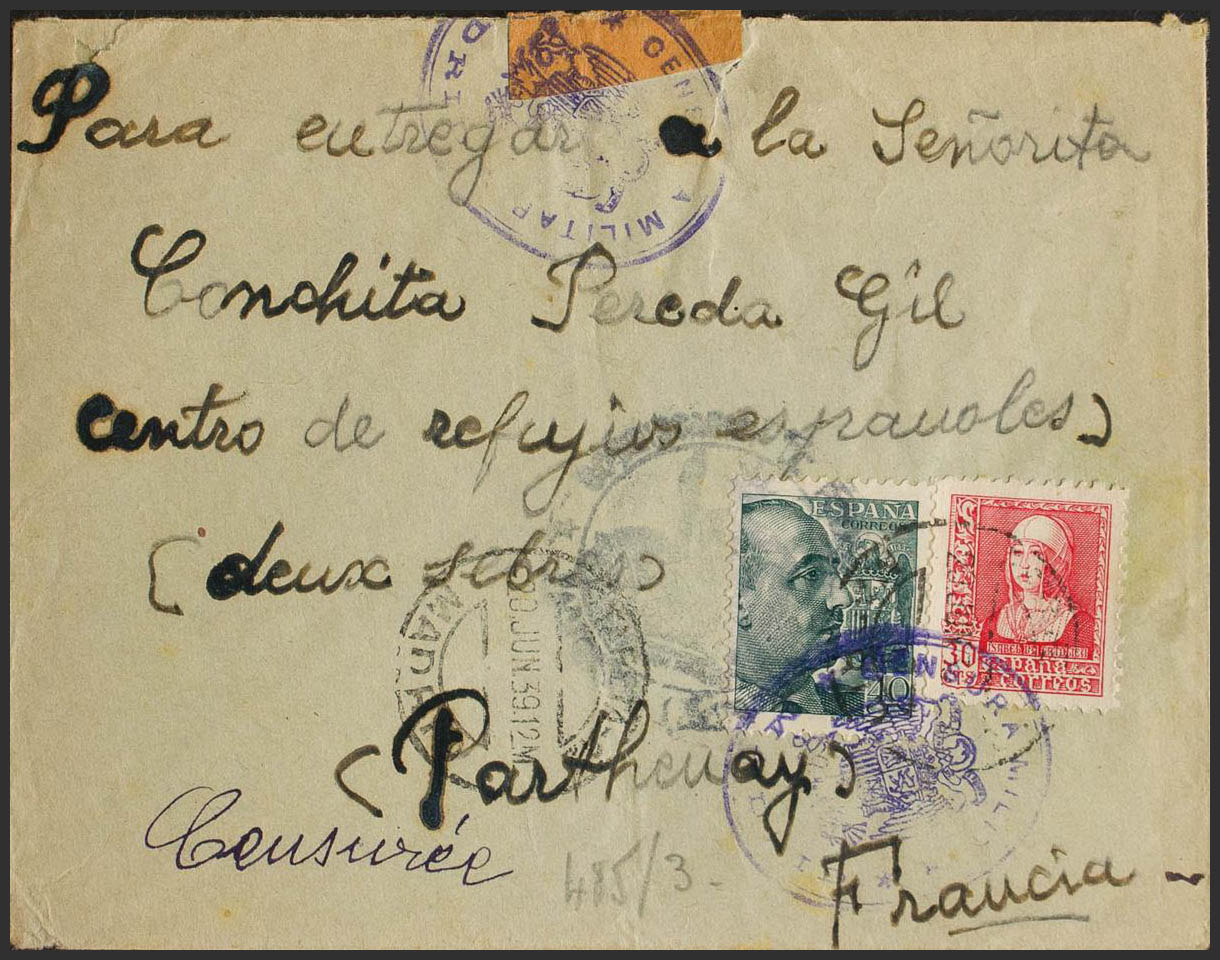 CENSURA MILITAR
Para entregar a la Señorita
Conchita Pereda Gil
centro de refujios espanoles)
(deux sebres)
ESPAÑA
CORREOS
40
ISABEL LA CATOLICA
30
CTS
España
correos
MADRID
30 JUN.39 12M
(Parthenay)
CENSURA MILITAR
Censurée
485/3-
Francia -